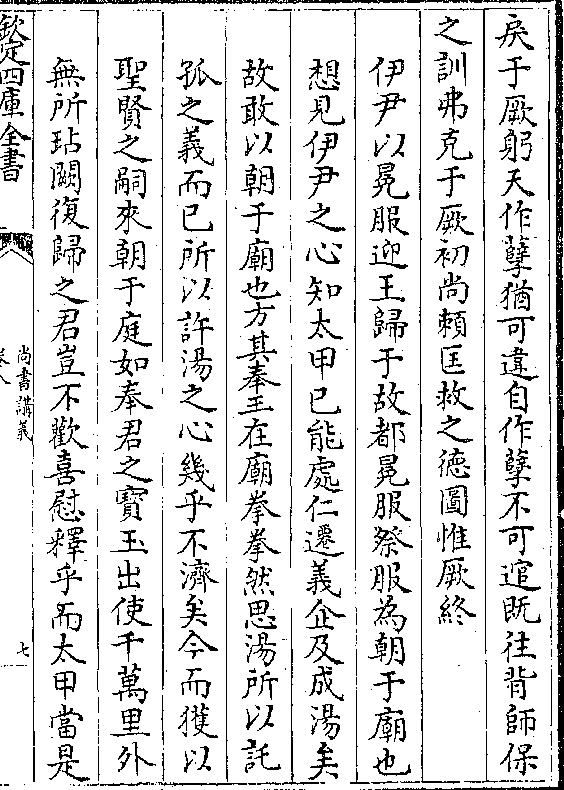 戾于厥躬天作孽猶可違自作孽不可逭既往背師保
之訓弗克于厥初尚賴匡救之德圖惟厥終
伊尹以冕服迎王歸于故都冕服祭服為朝于廟也
想見伊尹之心知太甲已能處仁遷義企及成湯矣
故敢以朝于廟也方其奉王在廟拳拳然思湯所以託
孤之義而已所以許湯之心幾乎不濟矣今而獲以
聖賢之嗣來朝于庭如奉君之寶玉出使千萬里外
無所玷闕復歸之君豈不歡喜慰釋乎而太甲當是
欽定四庫全書
尚書講義
卷八
七